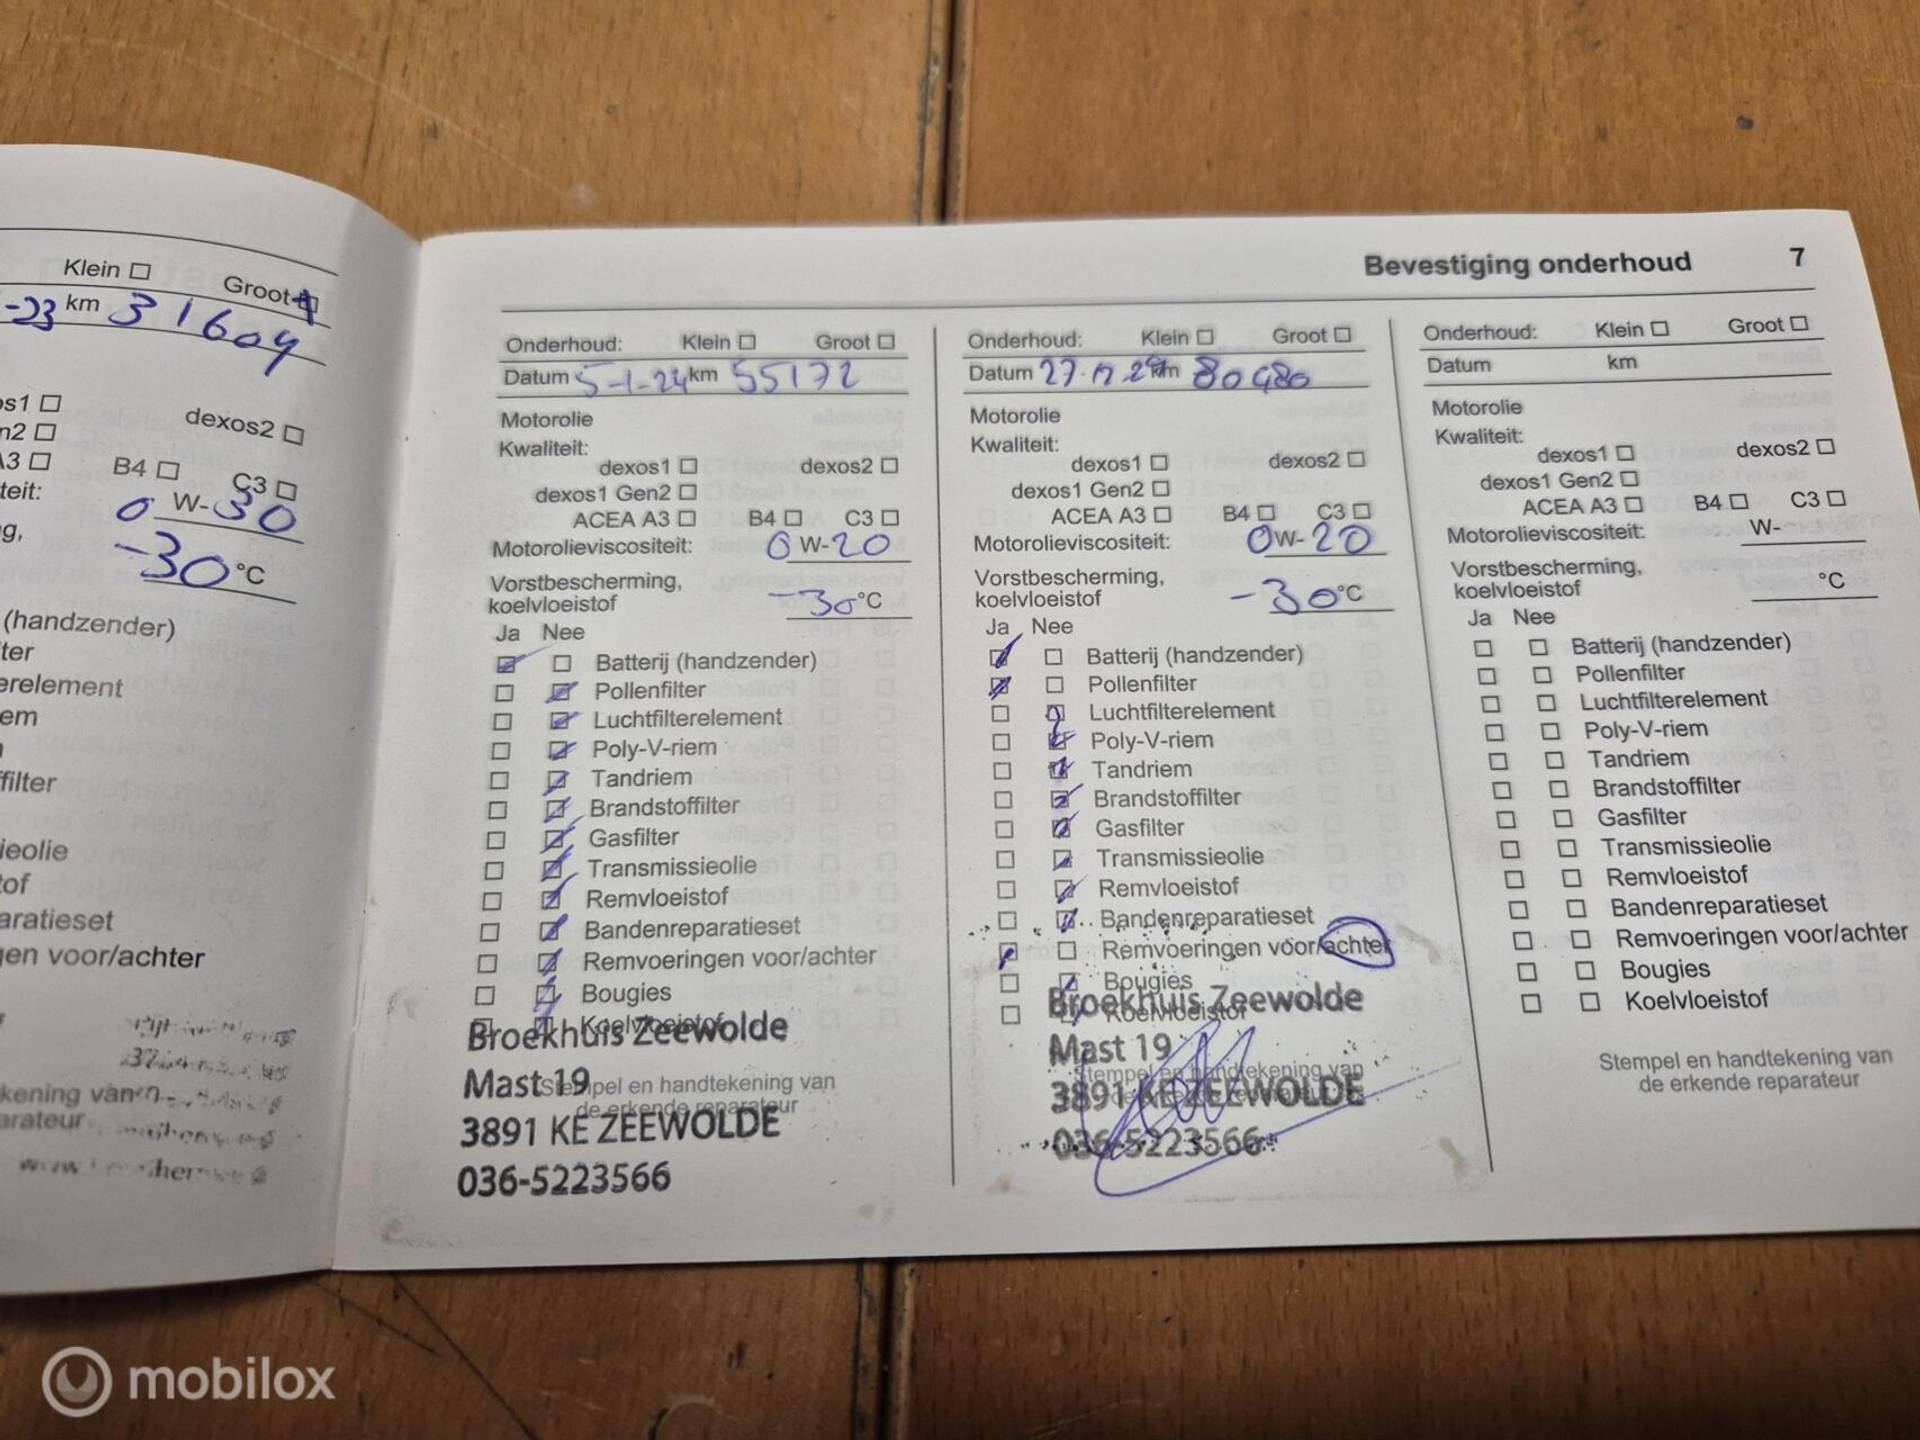 Klein Groot
-23 km 31604
os1
n2 dexos2
A3 B4 C3
teit: 0 W-30
g,
-30 °C
(handzender)
ter
erelement
em
filter
ieolie
tof
aratieset
en voor/achter
kening van
arateur
Bevestiging onderhoud 7
Onderhoud: Klein Groot
Datum 5-1-24 km 55172
Motorolie
Kwaliteit:
dexos1 dexos2
dexos1 Gen2
ACEA A3 B4 C3
Motorolieviscositeit: 0 W-20
Vorstbescherming,
koelvloeistof -30 °C
Ja Nee
Batterij (handzender)
Pollenfilter
Luchtfilterelement
Poly-V-riem
Tandriem
Brandstoffilter
Gasfilter
Transmissieolie
Remvloeistof
Bandenreparatieset
Remvoeringen voor/achter
Bougies
Koelvloeistof
Broekhuis Zeewolde
Mast 19
Stempel en handtekening van
de erkende reparateur
3891 KE ZEEWOLDE
036-5223566
Onderhoud: Klein Groot
Datum km 80480
Motorolie
Kwaliteit:
dexos1 dexos2
dexos1 Gen2
ACEA A3 B4 C3
Motorolieviscositeit: 0 W-20
Vorstbescherming,
koelvloeistof -30 °C
Ja Nee
Batterij (handzender)
Pollenfilter
Luchtfilterelement
Poly-V-riem
Tandriem
Brandstoffilter
Gasfilter
Transmissieolie
Remvloeistof
Bandenreparatieset
Remvoeringen voor/achter
Bougies
Koelvloeistof
Broekhuis Zeewolde
Mast 19
Stempel en handtekening van
3891 KE ZEEWOLDE
036-5223566
Onderhoud: Klein Groot
Datum km
Motorolie
Kwaliteit:
dexos1 dexos2
dexos1 Gen2
ACEA A3 B4 C3
Motorolieviscositeit: W-
Vorstbescherming,
koelvloeistof °C
Ja Nee
Batterij (handzender)
Pollenfilter
Luchtfilterelement
Poly-V-riem
Tandriem
Brandstoffilter
Gasfilter
Transmissieolie
Remvloeistof
Bandenreparatieset
Remvoeringen voor/achter
Bougies
Koelvloeistof
Stempel en handtekening van
de erkende reparateur
mobilox